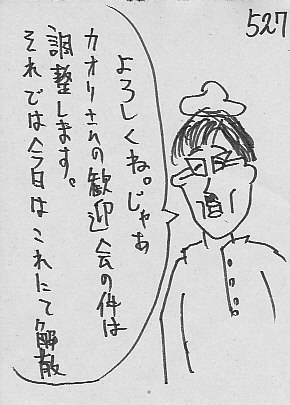 527
よろしくね。じゃあ
カオリさんの歓迎会の件は
調整します。
それでは今日はこれにて解散